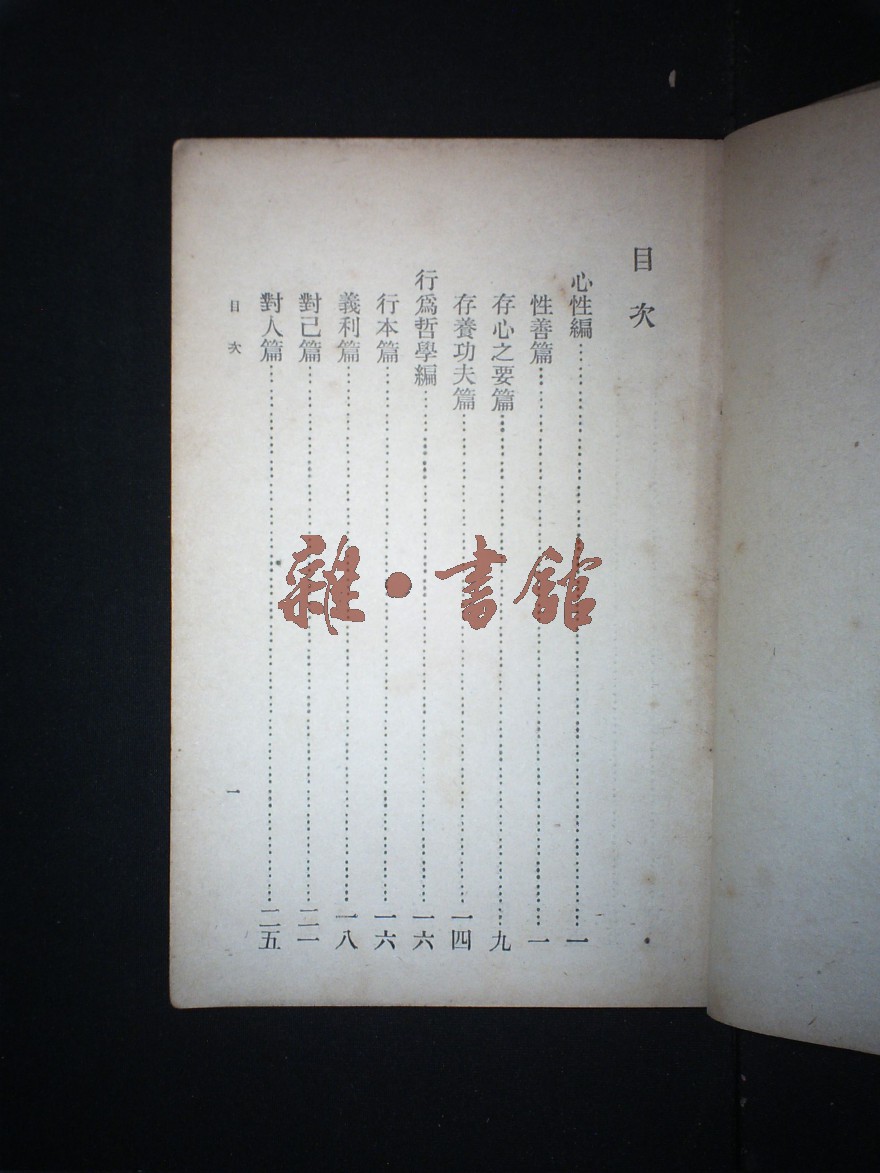 目次
心性編……一
性善篇……一
存心之要篇……九
存養功夫篇……一四
行爲哲學編……一六
行本篇……一六
義利篇……一八
對己篇……二一
對人篇……二五
目次
一
雜·書館